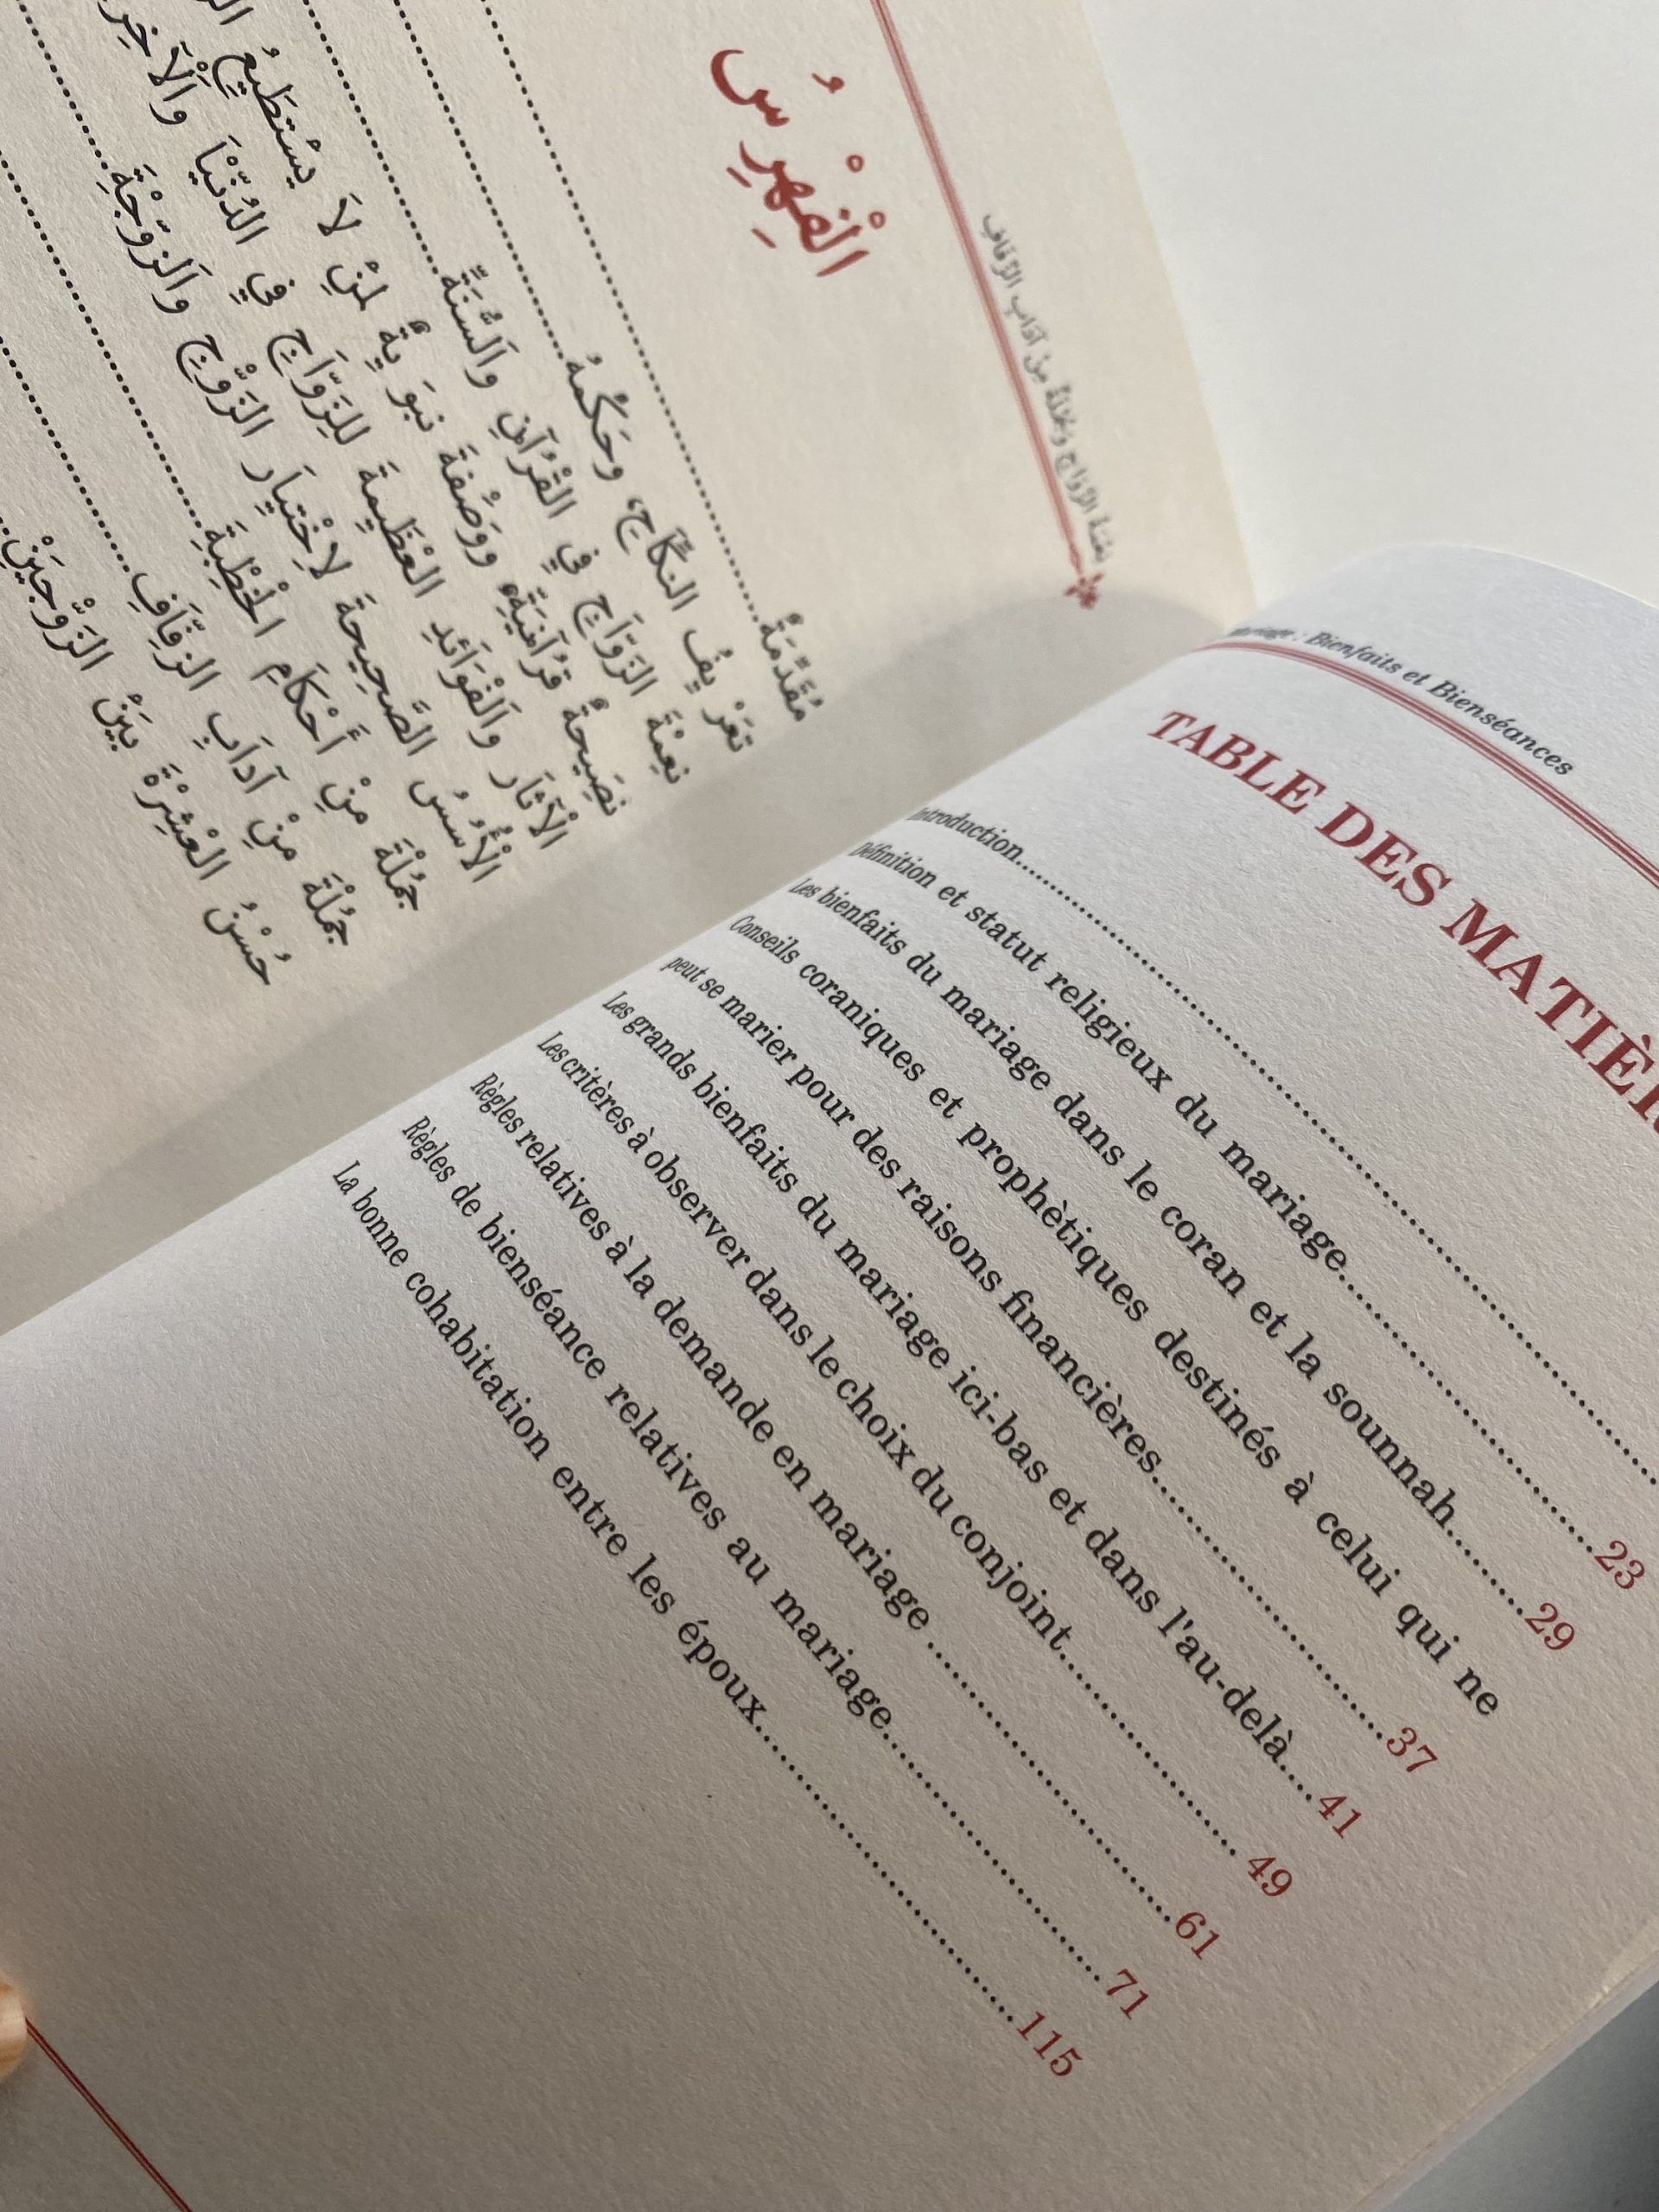 نِعْمَةُ الزَّوَاجِ وَجُمْلَةٌ مِنْ آدَابِ الزِّفَافِ
الْفِهْرِسُ
مُقَدِّمَةٌ
تَعْرِيفُ النِّكَاحِ، وَحُكْمُهُ
نِعْمَةُ الزَّوَاجِ فِي الْقُرْآنِ وَالسُّنَّةِ
نَصِيحَةٌ قُرْآنِيَّةٌ، وَوَصْفَةٌ نَبَوِيَّةٌ لِمَنْ لَا يَسْتَطِيعُ
الْآثَارُ وَالْفَوَائِدُ الْعَظِيمَةُ لِلزَّوَاجِ فِي الدُّنْيَا وَالْآخِرَةِ
الْأُسُسُ الصَّحِيحَةُ لِاخْتِيَارِ الزَّوْجِ وَالزَّوْجَةِ
جُمْلَةٌ مِنْ أَحْكَامِ الْخِطْبَةِ
جُمْلَةٌ مِنْ آدَابِ الزِّفَافِ
حُسْنُ الْعِشْرَةِ بَيْنَ الزَّوْجَيْنِ
Mariage : Bienfaits et Bienséances
TABLE DES MATIÈR
Introduction
Définition et statut religieux du mariage 23
Les bienfaits du mariage dans le coran et la sounnah 29
Conseils coraniques et prophètiques destinés à celui qui ne
peut se marier pour des raisons financières 37
Les grands bienfaits du mariage ici-bas et dans l'au-delà 41
Les critères à observer dans le choix du conjoint 49
Règles relatives à la demande en mariage 61
Règles de bienséance relatives au mariage 71
La bonne cohabitation entre les époux 115